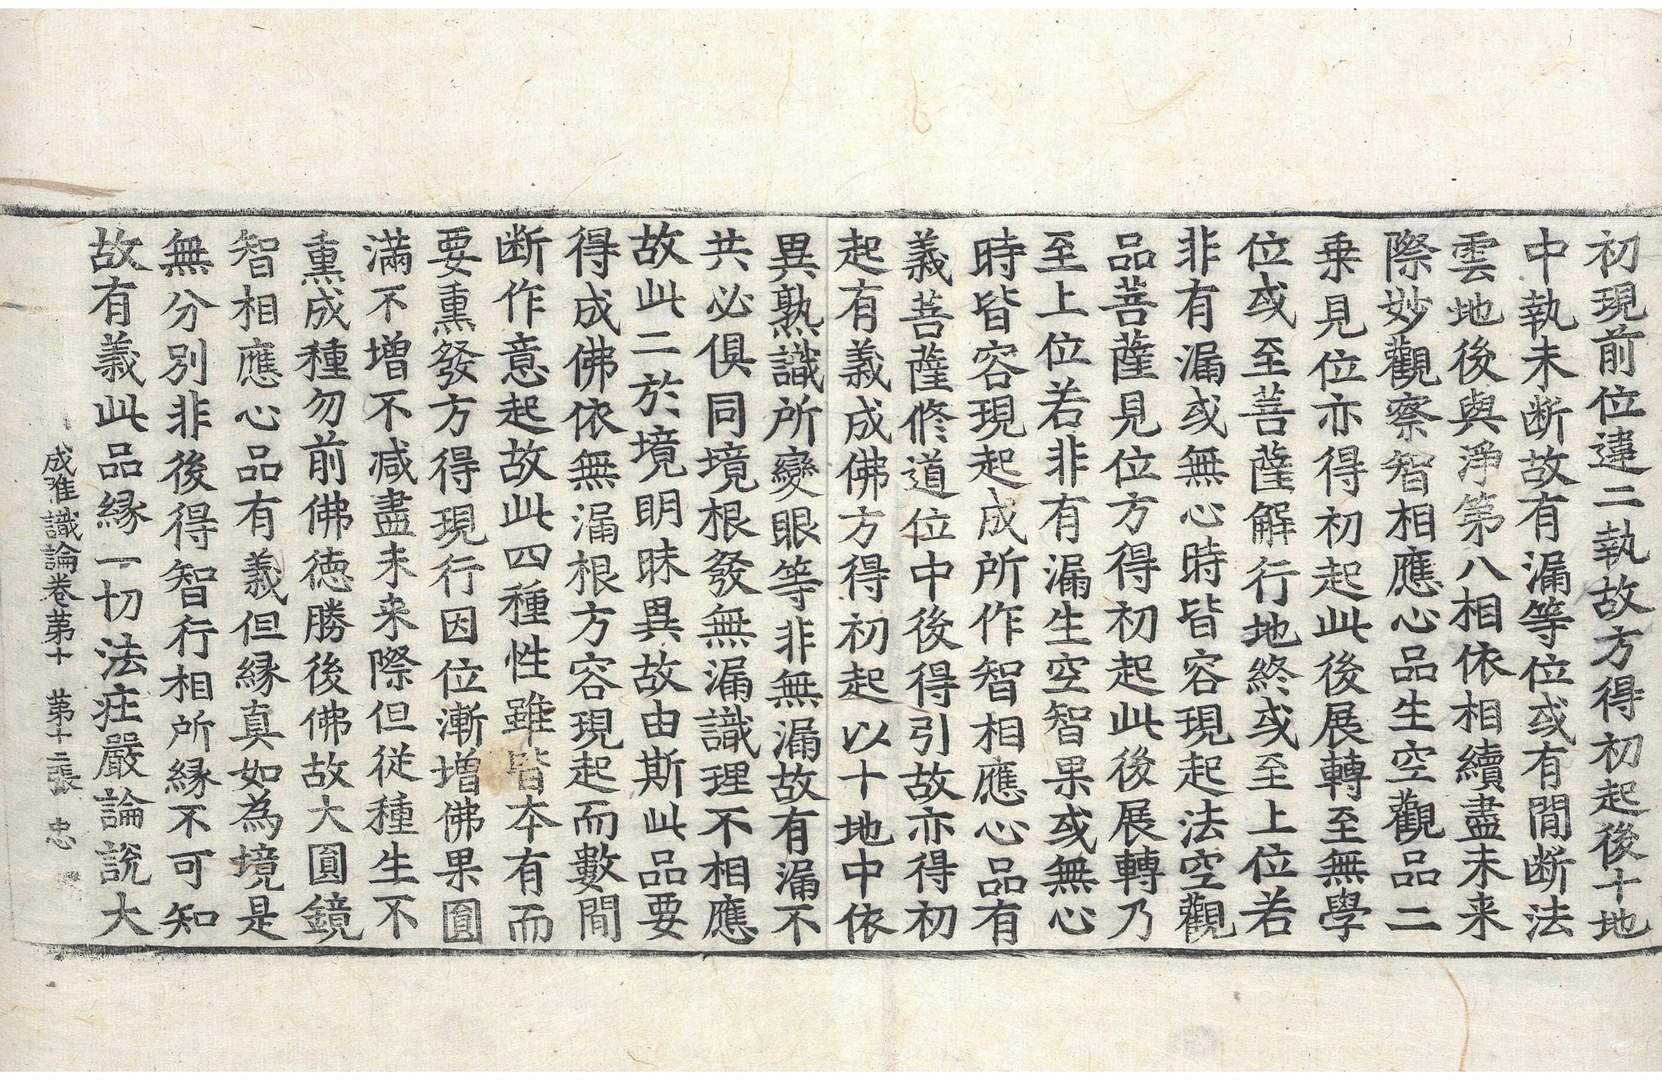 初現前位違二執故方得初起後十地
中執未断故有漏等位或有間断法
雲地後與淨第八相依相續盡未来
際妙觀察智相應心品生空觀品二
乗見位亦得初起此後展轉至無學
位或至菩薩解行地終或至上位若
非有漏或無心時皆容現起法空觀
品菩薩見位方得初起此後展轉乃
至上位若非有漏生空智果或無心
時皆容現起成所作智相應心品有
義菩薩修道位中後得引故亦得初
起有義成佛方得初起以十地中依
異熟識所變眼等非無漏故有漏不
共必俱同境根發無漏識理不相應
故此二於境明昧異故由斯此品要
得成佛依無漏根方容現起而數間
断作意起故此四種性雖皆本有而
要熏發方得現行因位漸增佛果圓
滿不增不减盡未来際但従種生不
熏成種勿前佛徳勝後佛故大圓鏡
智相應心品有義但縁真如為境是
無分別非後得智行相所縁不可知
故有義此品縁一切法荘嚴論說大
成唯識論卷第十　第十二張　忠